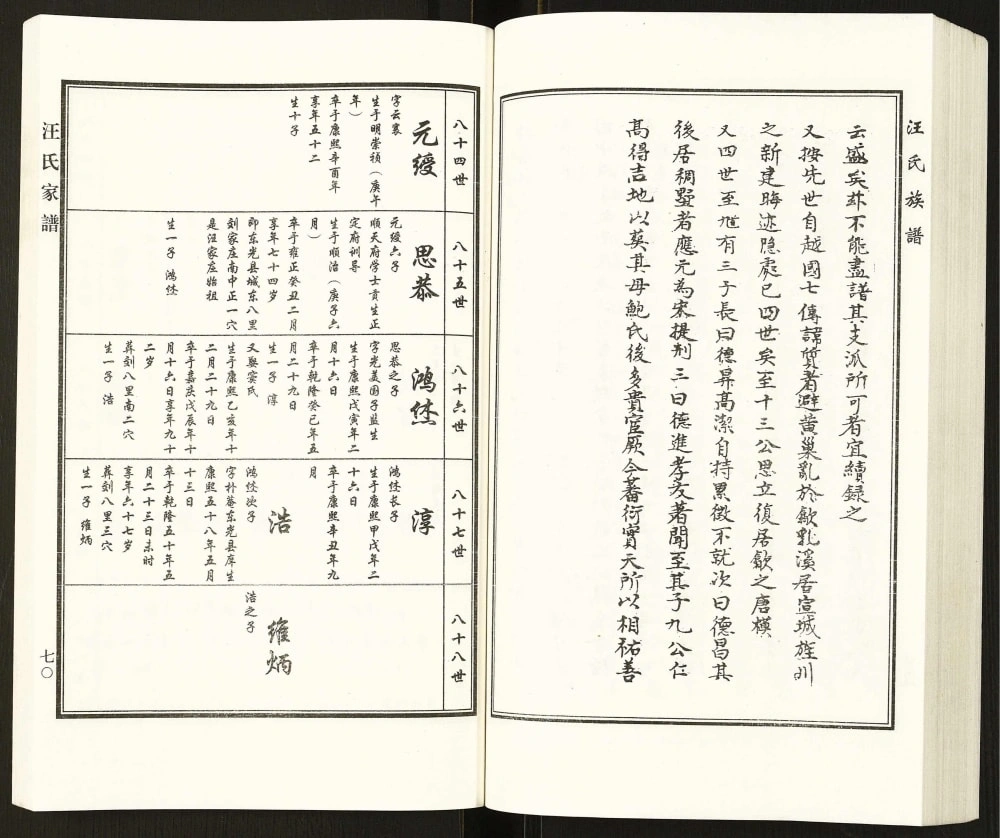 汪氏族譜
云盛矣茲不能盡譜其支派所可者宜續録之
又按先世自越國七傳諱質者避黄巢亂於歙乳溪居宣城旌川
之新建晦迹隐處已四世矣至十三公思立復居歙之唐模
又四世至 有三子長曰德昇高潔自持累徵不就次曰德昌其
後居稠墅者應元為宋提刑三曰德進孝友著聞至其子九公仁
高得吉地以葬其母鮑氏後多貴宦厥今蕃衍實天所以相祐善
八十四世
元缓
字云裘
生于明崇祯（庚午
年）
卒于康熙辛酉年
享年五十二
生十子
八十五世
思恭
元缓六子
顺天府学士贡生正
定府训导
生于顺治（庚子六
月）
卒于雍正癸丑二月
享年七十四岁
即东光县城东八里
刻家庄南中正一穴
是汪家庄始祖
生一子 鸿
八十六世
鸿
思恭之子
字光美国子监生
生于康熙戊寅年二
月十六日
卒于乾隆癸巳年五
月二十九日
生一子 淳
又娶窦氏
生于康熙乙亥年十
二月二十九日
卒于嘉庆戊辰年十
月十六日享年九十
二岁
葬刻八里南二穴
生一子 浩
八十七世
淳
鸿 长子
生于康熙甲戌年二
十六日
卒于康熙辛丑年九
月
浩
鸿 次子
字朴菴东光县庠生
康熙五十八年五月
十三日
卒于乾隆五十年五
月二十三日未时
享年六十七岁
葬刻八里三穴
生一子 维炳
八十八世
维炳
浩之子
汪氏家譜
七〇